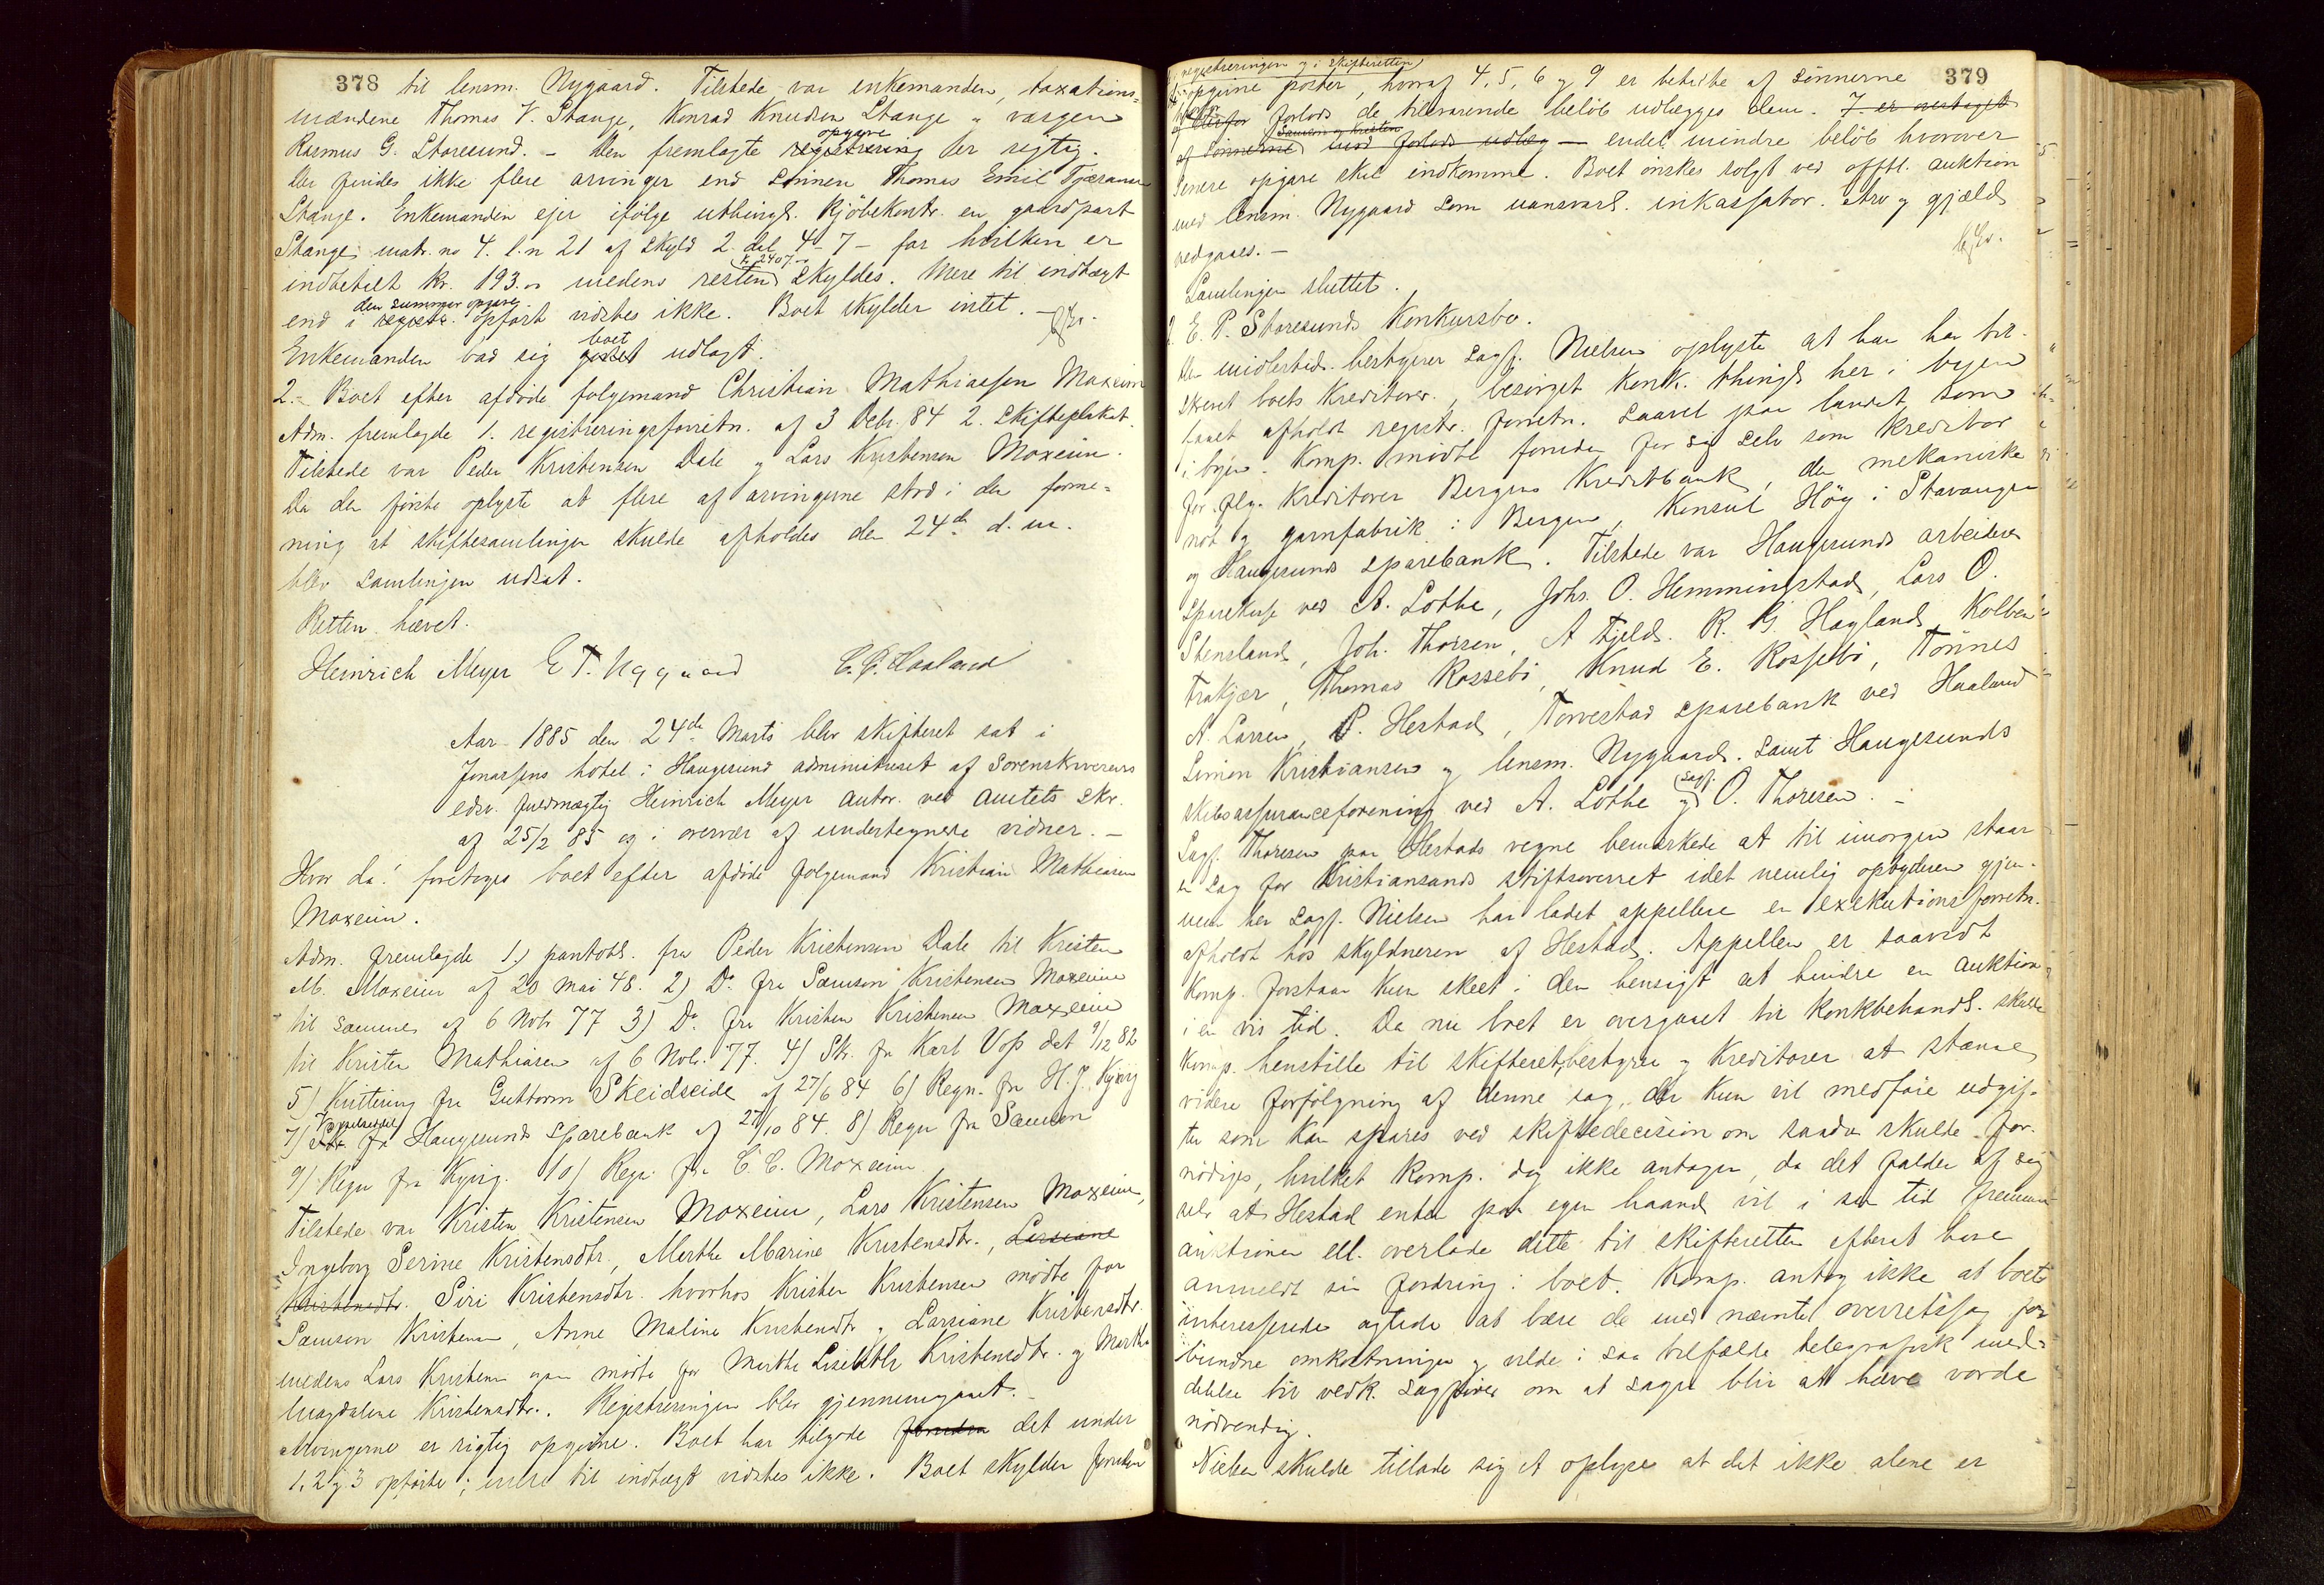 378 til lensm. Nygaard. Tilstede var enkemanden, taxations-
mændene Thomas V. Stange, Konrad Knudsen Stange og værgen
opgave
Rasmus G. Storesund. - Den fremlagte registrering er rigtig.
Der findes ikke flere arvinger end sønnen Thomas Emil Tjøranes
Stange. Enkemanden ejer ifølge uthingl. kjøbekontr. en gaardpart
Stange matr. no 4. l.n 21 af skyld 2 dal. 4 - 7 - for hvilken er
k. 2407
indbetalt kr. 193.00 medens resten skyldes. Mere til indtægt
den summar. opgave
end i registr. opført vidstes ikke. Boet skylder intet. -
boet
Enkemanden bad sig godset udlagt.
2. - Boet efter afdøde følgemand Christian Mathiassen Moxeim
Adm. fremlagde 1. registreringsforretn. af 3 Debr. 84 2. skifteplakat.
Tilstede var Peder Kristensen Dale og Lars Kristensen Moxeim.
Da den første oplyste at flere af arvingerne stod i den forme-
ning at skiftesamlingen skulde afholdes den 24de d. m.
blev samlingen udsat.
Retten hævet.
Heinrich Meyer E T. Nygaard C. C. Haaland
Aar 1885 den 24de Marts blev skifteret sat i
Jonassens hotel i Haugesund administreret af Sorenskriverens
edsv. fuldmægtig Heinrich Meyer autor. ved amtets skr.
af 25/2 85 og i overvær af undertegnede vidner. -
Hvor da! foretoges boet efter afdøde følgemand Kristian Mathiasen
Moxeim.
Adm. fremlagde 1.) pantobl. fra Peder Kristensen Dale til Kristen
M. Moxeim af 20 mai 48. 2) Do. fra Samson Kristensen Moxeim
til samme af 6 Nobr 77 3) Do fra Kristen Kristensen Moxeim
til Kristen Mathiasen af 6 Nob. 77. 4) Skr. fra Karl Voss dat 9/12 82
5) Kvittering fra Guttorm Skeidseide af 27/6 84 6) Regn. fra H. J. Kyvig
7) fra Haugesunds sparebank af 27/10 84. 8) Regn fra Samson
9) Regn fra Kyvig. 10) Regn. fra C. C. Moxeim
Tilstede var Kristen Kristensen Moxeim, Lars Kristensen Moxeim,
Ingeborg Serine Kristensdtr, Merthe Marine Kristensdtr., Larsiane
Kristensdtr. Siri Kristensdtr. hvorhos Kristen Kristensen mødte for
Samson Kristensen, Anne Maline Kristensdtr og Larsiane Kristensdtr.
medens Lars Kristensen ogsaa mødte for Merthe Lisebeth Kristensdtr. og Marthe
Magdalene Kristensdtr.. Registreringen blev gjennemgaaet. -
Arvingerne er rigtig opgivne. Boet har tilgode foruden det under
1, 2 og 3 opførte; mere til indtægt vidstes ikke. Boet skylder foruden
379
registreringen og i skifteretten
opgivne poster, hvoraf 4, 5, 6 og 9 er betalte af sønnerne
forlods de tilsvarende beløb udlægges dem. 7 er overtaget
Samson og Kristen
af sønnerne mod forlods udlæg - endel mindre beløb hvorover
senere opgave skal indkomme. Boet ønskes solgt ved offtl. auktion
med lensm. Nygaard som uansvarl. inkassator. Arv og gjæld
vedgaaes. -
Samlingen sluttet.
2. E. P. Storesunds Konkursbo.
Den midlertid. bestyrer sagf. Nielsen oplyste at han har til-
skrevet boets kreditorer., besørget konk. thingl. her i byen
faaet afholdt registr. forretn. saavel paa landet som
i byen. Komp. mødte foruden for sig selv som kreditor
for flg. kreditorer Bergens Kreditbank, den mekaniske
not og garnfabrik i Bergen, Konsul Høy i Stavanger
og Haugesunds sparebank. Tilstede var Haugesunds arbeideres
sparekasse ved A. Lothe, Johs. O. Hemmingstad, Lars O.
Stensland, Joh. Thorsen, A Fjeld. R. G. Hagland, Kolben
Trækjær, Thomas Rossebø, Knud E. Rossebø, Tønnes
A. Larsen, P. Hestad, Torvestad sparebank ved Haaland
Simon Kristiansen og lensm. Nygaard. samt Haugesunds
sagf.
skibsassuranceforening ved A. Lothe og O. Thoresen. -
Sagf. Thoresen paa Hestads vegne bemærkede at til imorgen staar
en sag for Kristiansands stiftsoverret idet nemlig opbyderen gjen-
nem her sagf. Nielsen har ladet appellere en exekutionsforretn.
afholdt hos skyldneren af Hestad. Appellen er saavidt
komp. forstaar kun skeet i den hensigt at hindre en auktion
i en vis tid. Da nu boet er overgaaet til konkbehandl. skulde
komp. henstille til skifteret, bestyrer og kreditorer at stanse
videre forfølgning af denne sag, der kun vil medføre udgif-
ter som kan spares ved skiftedecision om saadan skulde for-
nødiges, hvilket komp. dog ikke antager, da det falder af sig
selv at Hestad enten paa egen haand vil i sin tid fremme
auktionen ell. overlade dette til skifteretten efterat have
anmeldt sin fordring i boet. Komp. antog ikke at boets
interesserede agtede at bære de med nævnte overretssag for-
bundne omkostninger og vilde i saa tilfælde telegrafisk med-
delelse til vedk. sagfører om at sagen blir at hæve vorde
nødvendig.
Nielsen skulde tillade sig at oplyse at det ikke alene er